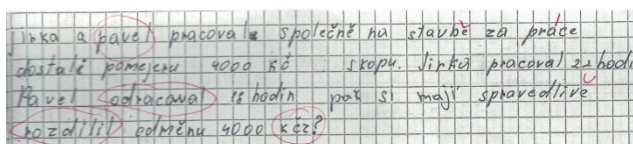 Jirka a pavel pracoval společně na stavbě za práce
dostali pomejeru 4000 kč skopu. Jirka pracoval 22 hodi
Pavel odracoval 18 hodin pak si mají spravedlivě
rozdilil odměnu 4000 kčz?